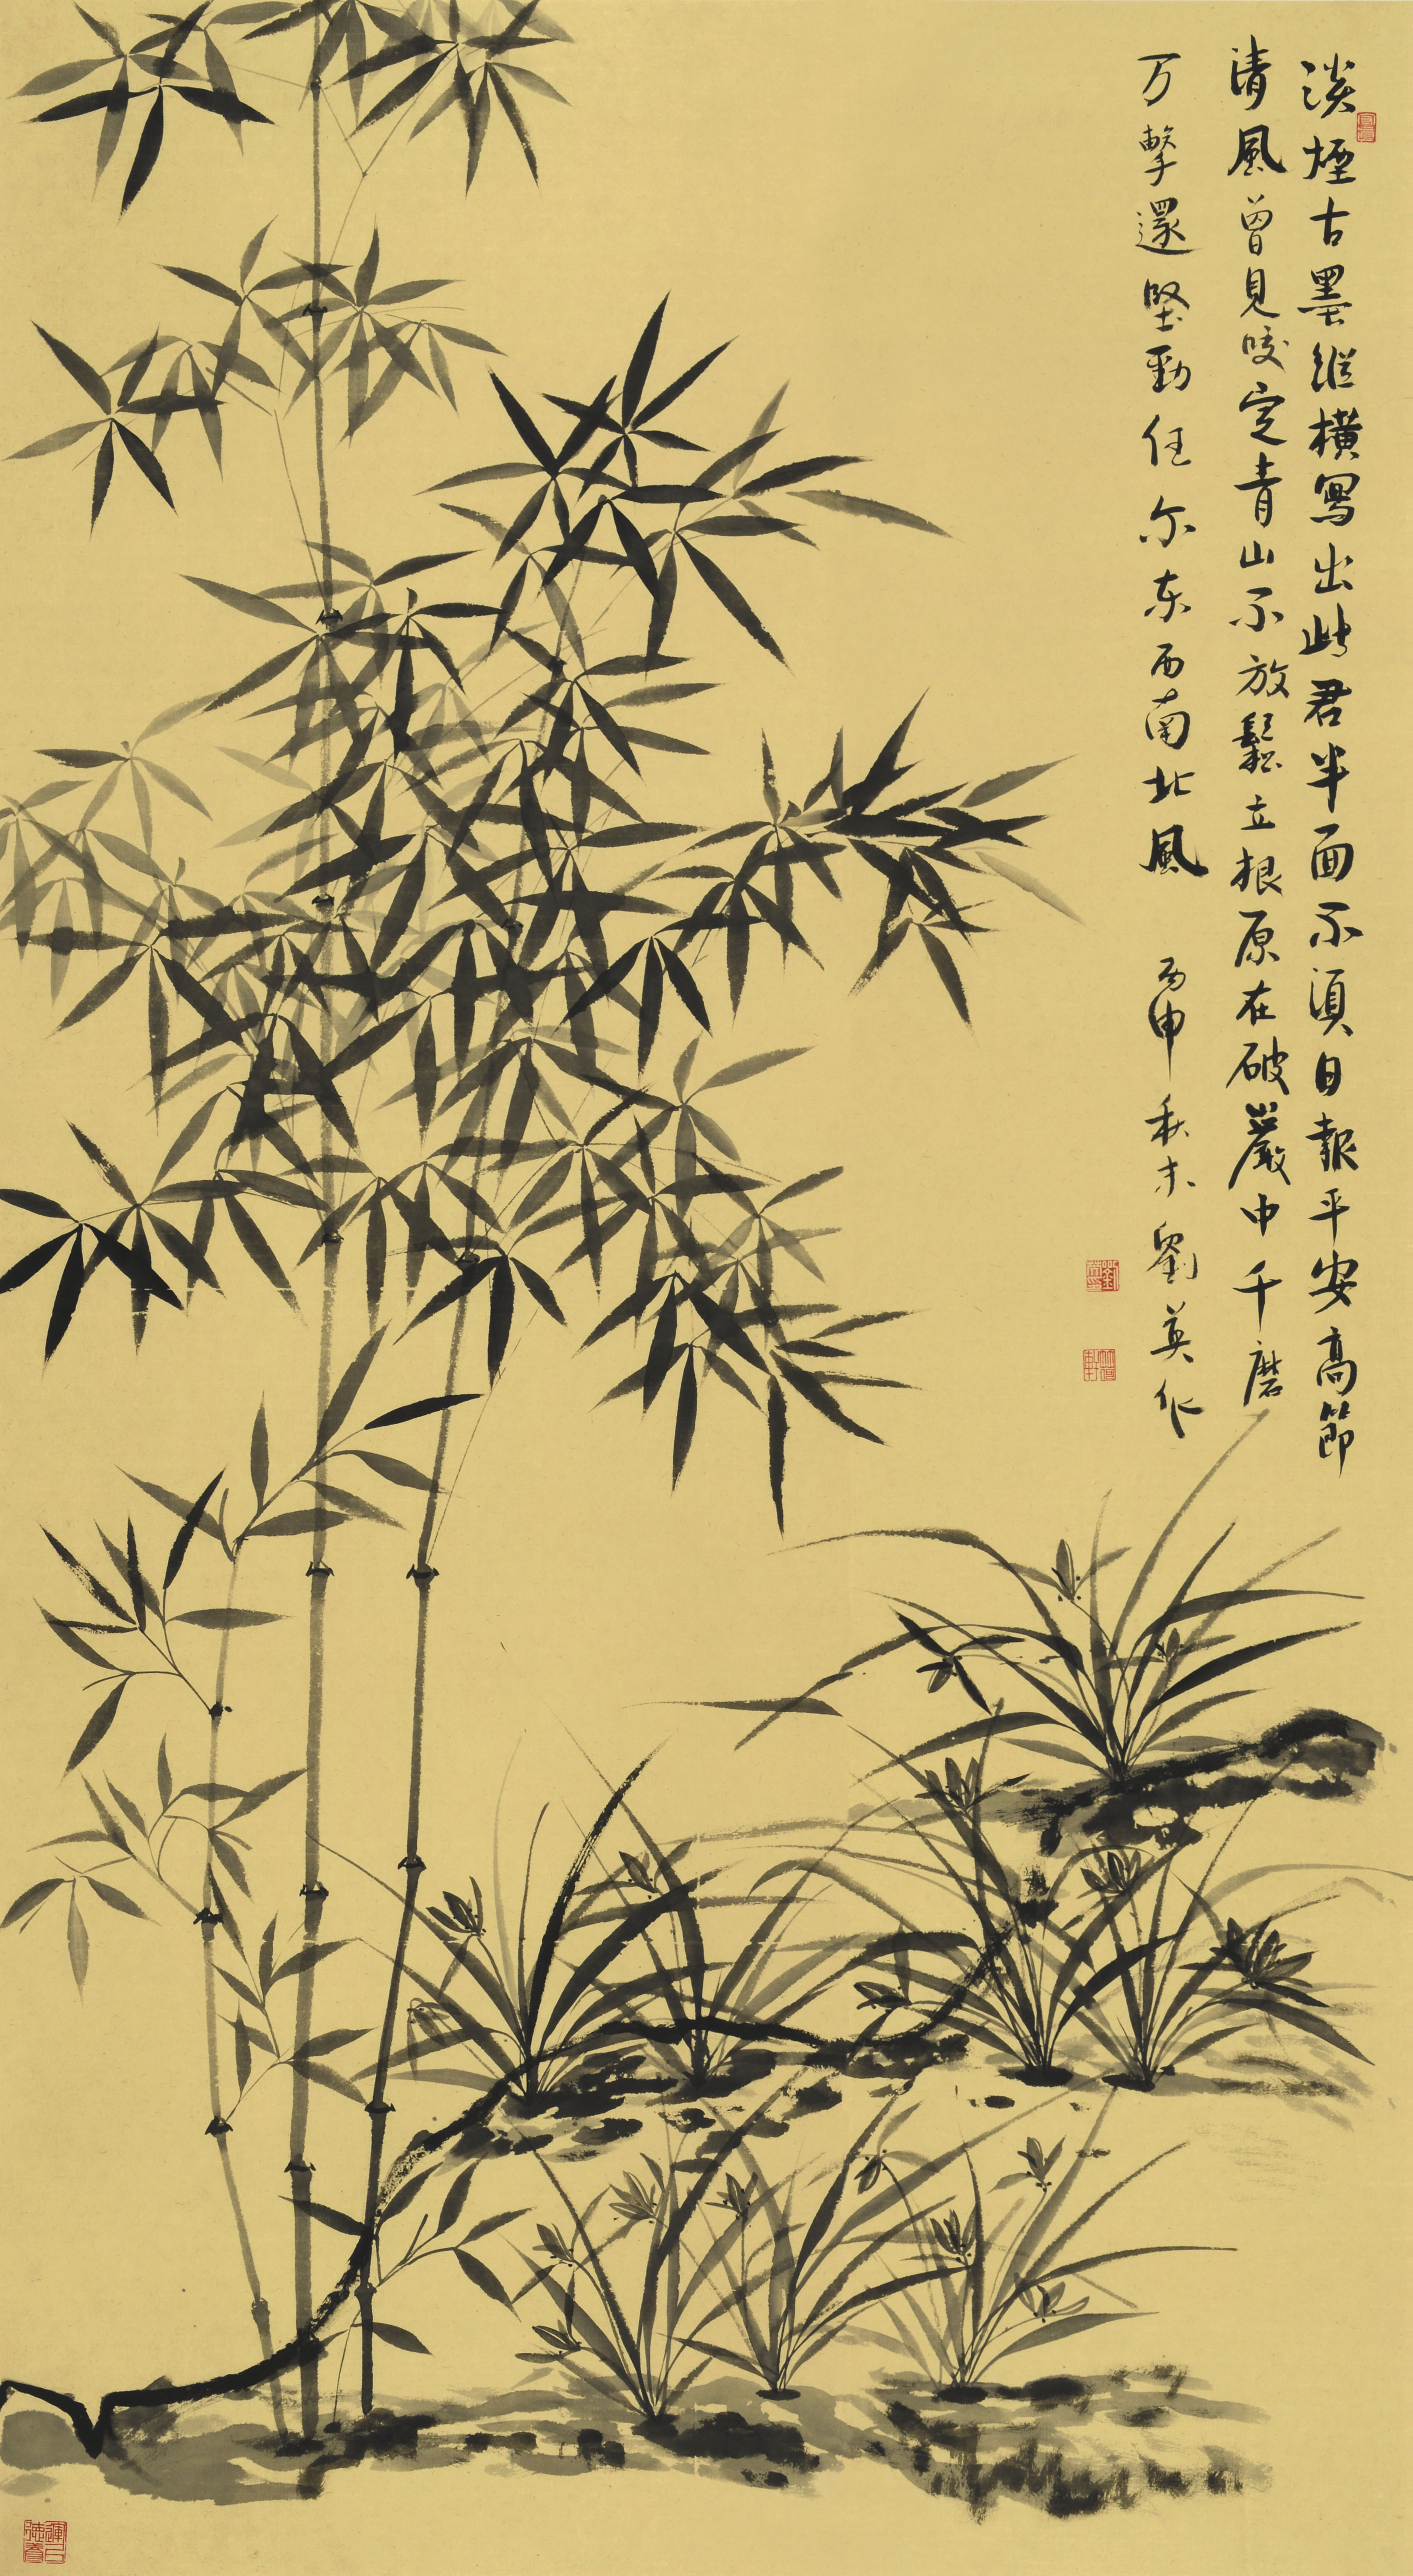 淡煙古墨縱横寫出此君半面不須日報平安高節
清風曾見咬定青山不放鬆立根原在破巖中千磨
万擊還堅勁任尔东西南北風 丙申秋末劉英作